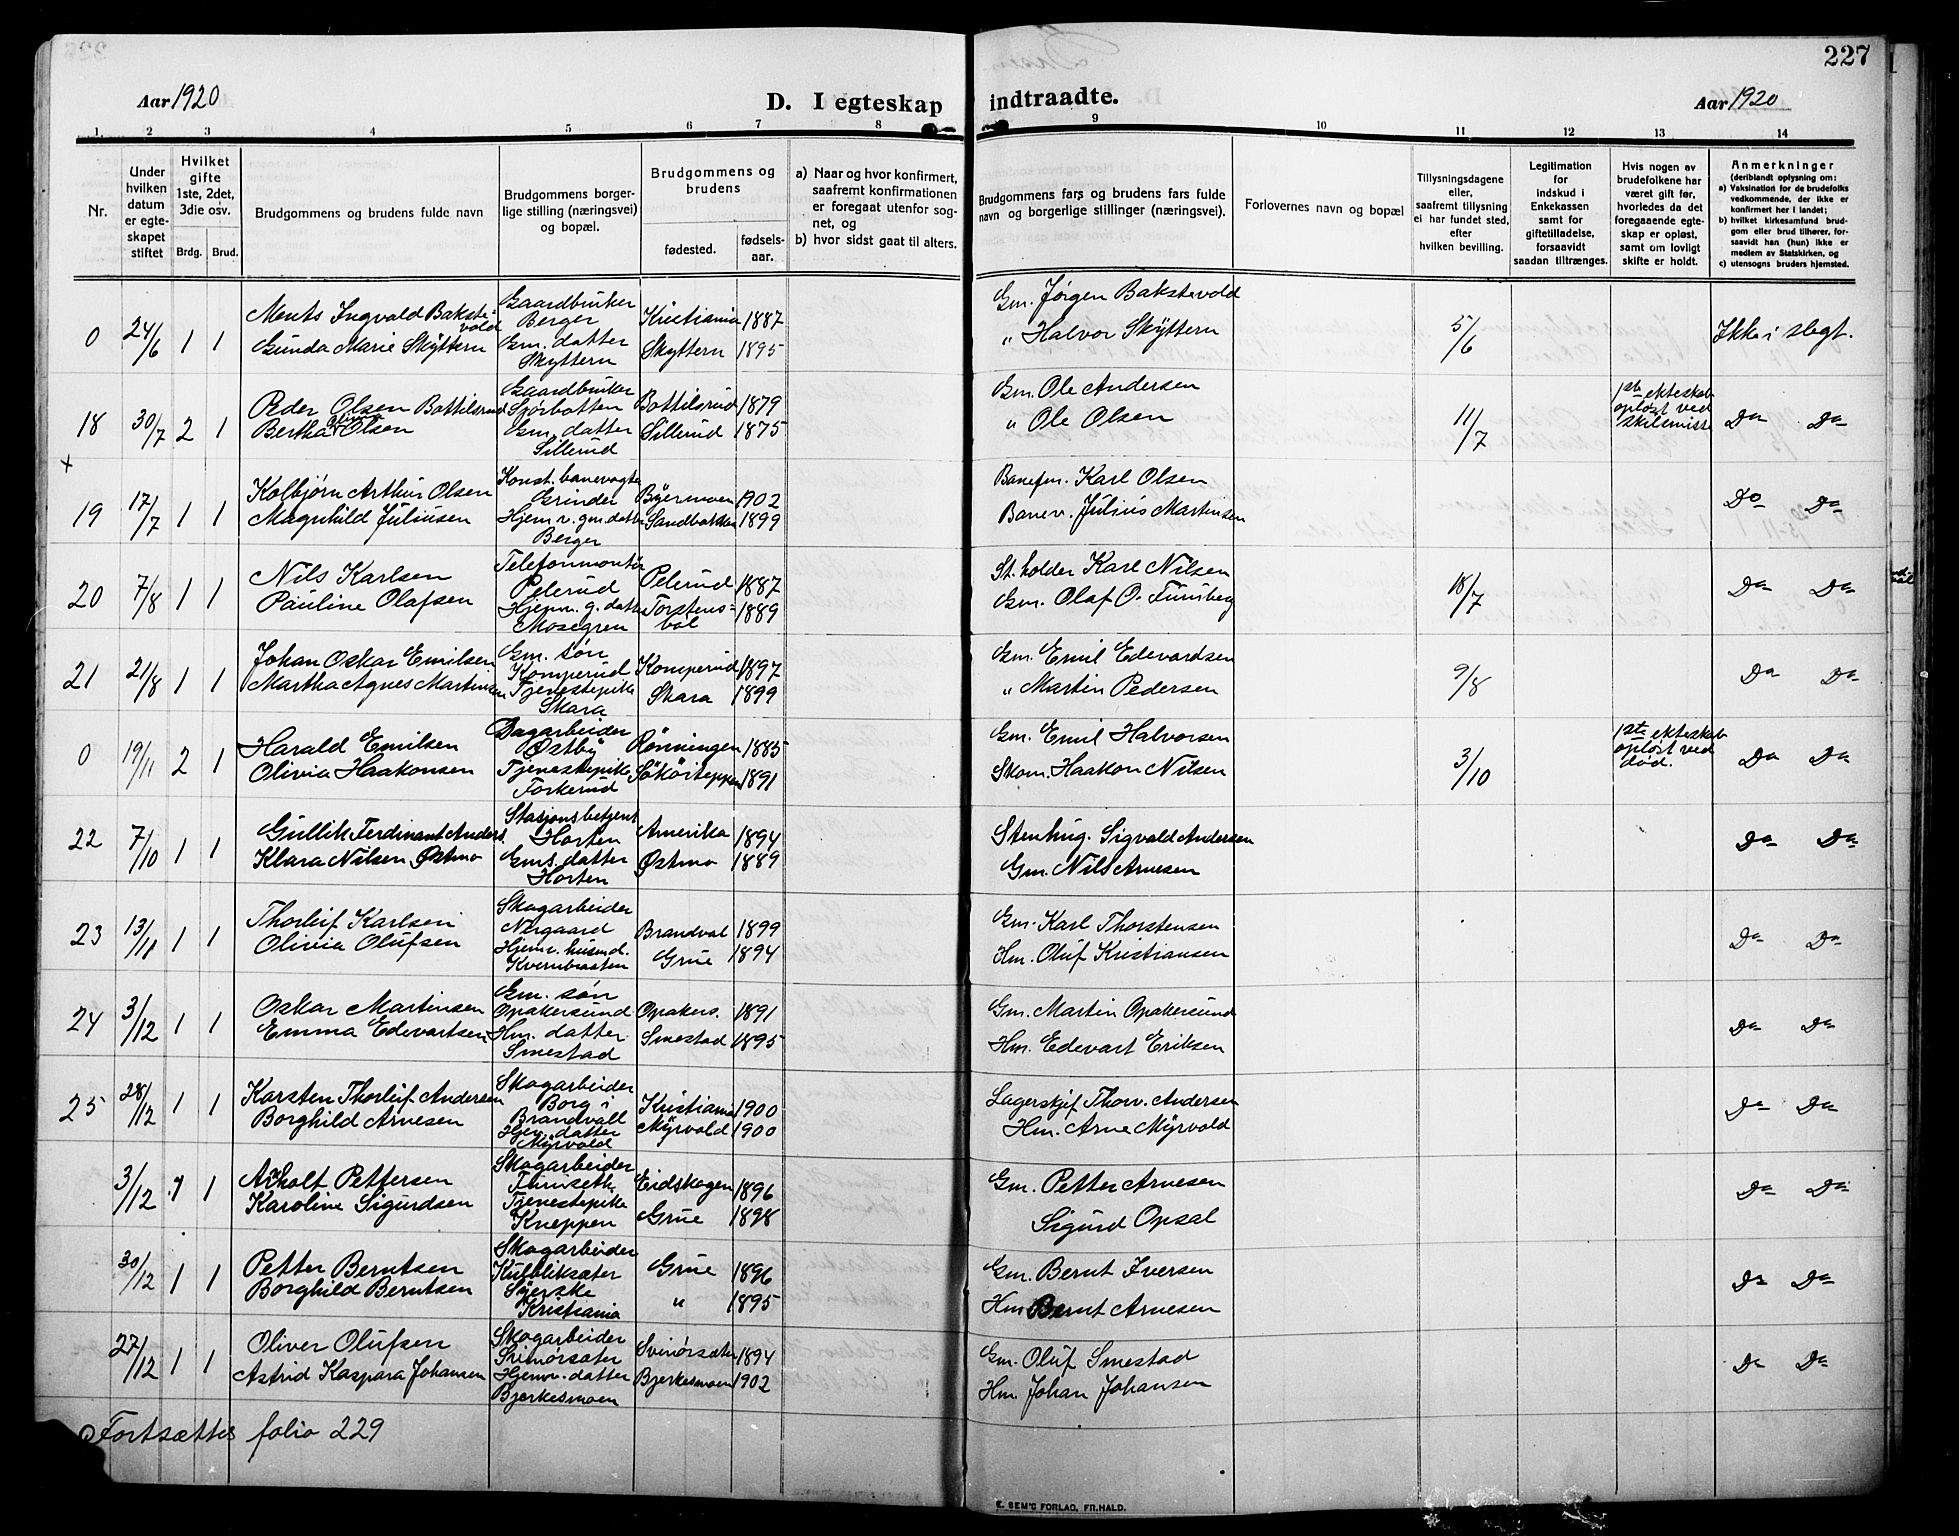 227
Aar 1920
D. I egteskap indtraadte.
Aar 1920
1. 2 3 4 5 6 7 8 9 10 11 12 13 14
Nr.
Under hvilken datum er egteskapet stiftet
Hvilket gifte 1ste, 2det, 3die osv.
Brdg. Brud.
Brudgommens og brudens fulde navn
Brudgommens borgerlige stilling (næringsvei) og bopæl.
Brudgommens og brudens
fødested. fødselsaar.
a) Naar og hvor konfirmert, saafremt konfirmationen er foregaat utenfor sognet, og
b) hvor sidst gaat til alters.
Brudgommens fars og brudens fars fulde navn og borgerlige stillinger (næringsvei).
Forlovernes navn og bopæl
Tillysningsdagene eller, saafremt tillysning ei har fundet sted, efter hvilken bevilling.
Legitimation for indskud i Enkekassen samt for giftetilladelse, forsaavidt saadan tiltrænges.
Hvis nogen av brudefolkene har været gift før, hvorledes da det foregaaende egteskap er opløst, samt om lovligt skifte er holdt.
Anmerkninger (deriblandt oplysning om: a) Vaksination for de brudefolks vedkommende, der ikke er konfirmert her i landet; b) hvilket kirkesamfund brudgom eller brud tilhører, forsaavidt han (hun) ikke er medlem av Statskirken, og c) utensogns bruders hjemsted.
0 24/6 1 1 Ments Ingvald Bakstevold Gaardbruker Berger Kristiania 1887 Gm. Jørgen Bakstevold 5/6 Ikke i slegt.
Gunda Marie Skyttern Gm. datter Skyttern Skyttern 1895 " Halvor Skyttern
18 30/7 2 1 Peder Olsen Bottilsrud Gaardbruker Sjørbotten Bottilsrud 1879 Gm. Ole Andersen 11/7 1ste ekteskab opløst ved skilsmisse Do Do
Bertha Olsen Gm. datter Sillerud Sillerud 1875 " Ole Olsen
x
19 17/7 1 1 Kolbjørn Arthur Olsen Konst. banevogter Grinder Byermoen 1902 Banefm. Karl Olsen Do Do
Magnhild Juliusen Hjem v. gm. datter Berger Sandbakken 1899 Banev. Julius Martinsen
20 7/8 1 1 Nils Karlsen Telefonmontør Pelerud Pelerud 1887 St. holder Karl Nilsen 18/7 Do Do
Pauline Olafsen Hjemv. g. datter Mosegren Torstensbøl 1889 Gm. Olaf O. Funsberg
21 21/8 1 1 Johan Oskar Emilsen Gm. søn Komperud Komperud 1897 Gm. Emil Edevardsen 9/8 Do Do
Martha Agnes Martinsen Tjenestepike Skara Skara 1899 " Martin Pedersen
0 19/11 2 1 Harald Emilsen Dagarbeider Østby Rönningen 1885 Gm. Emil Halvorsen 3/10 1ste ekteskab opløst ved død. Do Do
Olivia Haakonsen Tjenestepike Forkerud Sököiteppen 1891 Skom. Haakon Nilsen
22 7/10 1 1 Gullik Ferdinant Anders. Stasjonsbetjent Horten Amerika 1894 Stenhug. Sigvald Andersen Do Do
Klara Nilsen Østmo Gms. datter Horten Østmo 1889 Gm. Nils Arnesen
23 13/11 1 1 Thorleif Karlsen Skogarbeider Nergaard Brandval 1899 Gm. Karl Thorstensen Do Do
Olivia Olufsen Hjemv. husmd. Kvernbraaten Grue 1894 Hm. Oluf Kristiansen
24 3/12 1 1 Oskar Martinsen Gm. søn Opakersund Opakers. 1891 Gm. Martin Opakersund Do Do
Emma Edevartsen Hm. datter Smestad Smestad 1895 Hm. Edevart Eriksen
25 28/12 1 1 Karsten Thorleif Andersen Skogarbeider Borg i Brandvall Kristiania 1900 Lagerskjef Thorv. Andersen Do Do
Borghild Arnesen Hjem. datter Myrvold Myrvold 1900 Hm. Arne Myrvold
3/12 1 1 Arholt Pettersen Skogarbeider Furuseth Eidskogen 1896 Gm. Petter Arnesen Do Do
Karoline Sigurdsen Tjenestepike Kneppen Grue 1898 Sigurd Opsal
30/12 1 1 Petter Berntsen Skogarbeider Kulbliksæter Grue 1896 Gm. Bernt Iversen Do Do
Borghild Berntsen Syerske Kristiania " 1895 Hm Bernt Arnesen
27/12 1 1 Oliver Olufsen Skogarbeider Svinørsæter Svinørsæter 1894 Gm. Oluf Smestad Do Do
Astrid Kaspara Johansen Hjemv. datter Bjerkesmoen Bjerkesmoen 1902 Hm. Johan Johansen
Fortsættes folio 229
E. SEM'S FORLAG, FR.HALD.